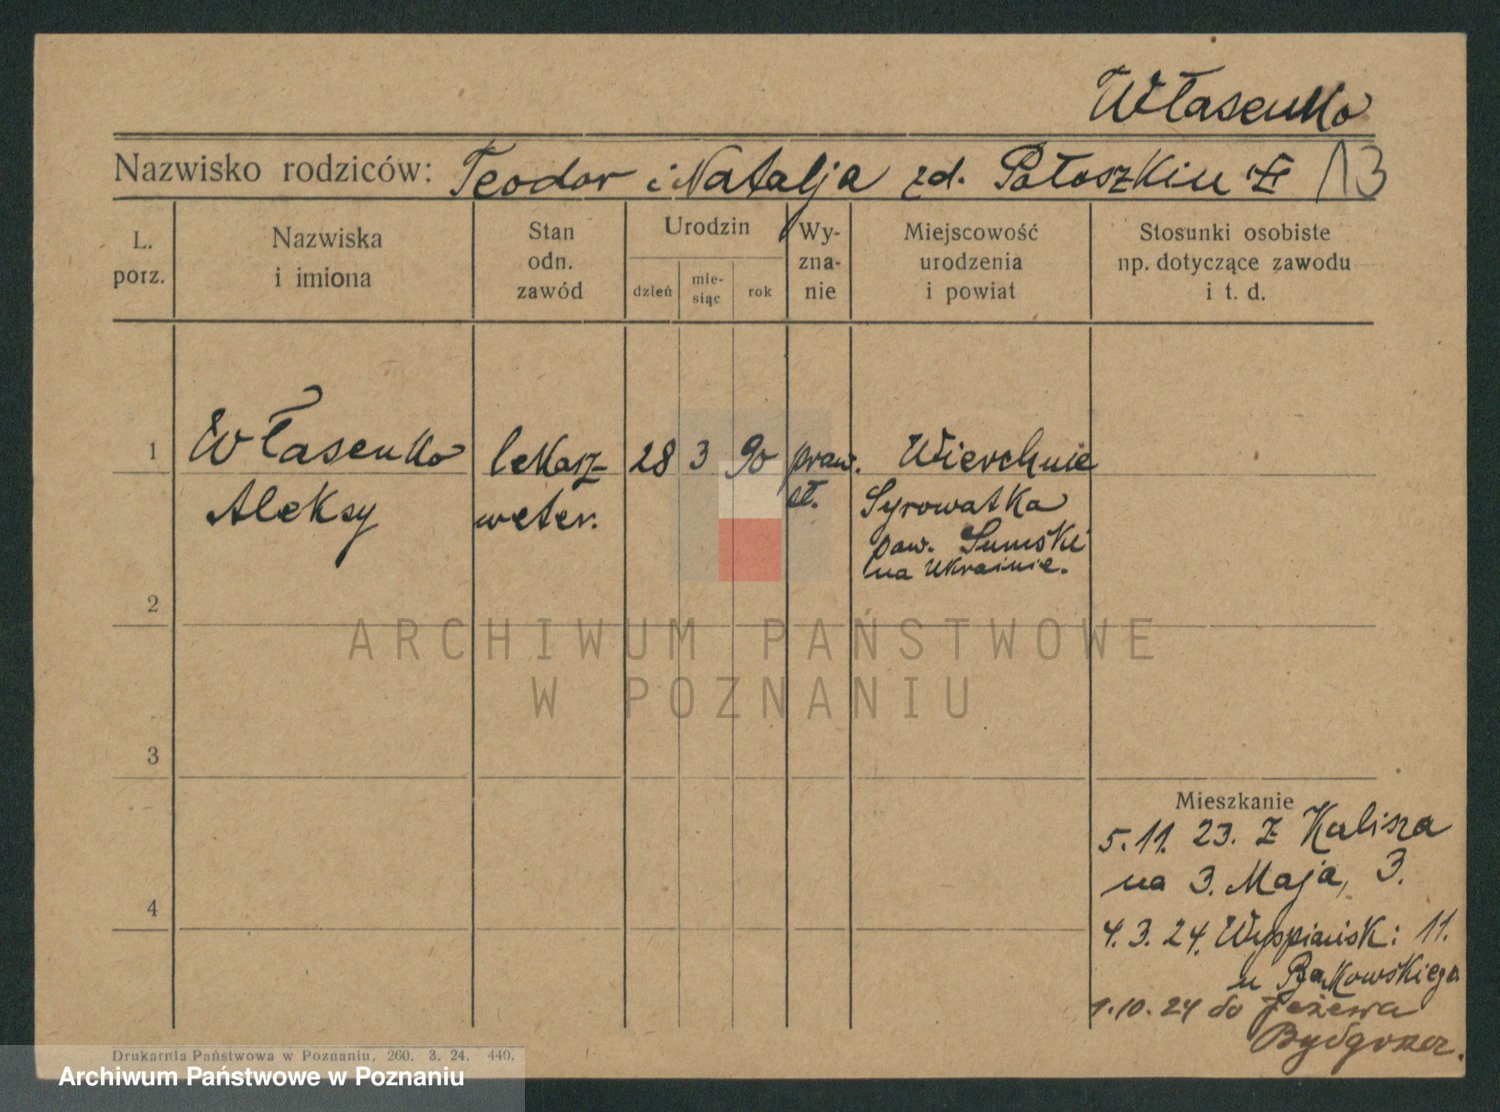 Własenko
Nazwisko rodziców: Teodor i Natalja zd. Połoszkin
13
L. porz.
Nazwiska i imiona
Stan odn. zawód
Urodzin
dzień
mie-siąc
rok
Wy-zna-nie
Miejscowość urodzenia i powiat
Stosunki osobiste np. dotyczące zawodu i t. d.
1 Własenko lekarz 28 3 90 praw. Wierchnie
Aleksy weter. sł. Syrowatka
pow. Sumski
na Ukrainie.
2
ARCHIWUM PAŃSTWOWE
W POZNANIU
3
Mieszkanie
5.11. 23. Z Kalisza
na 3. Maja, 3.
4
4. 3. 24. Wyspiańsk: 11.
u Bąkowskiego
1.10.24 do Jeżewa
Drukarnia Państwowa w Poznaniu. 260. 3. 24. 440.
Archiwum Państwowe w Poznaniu